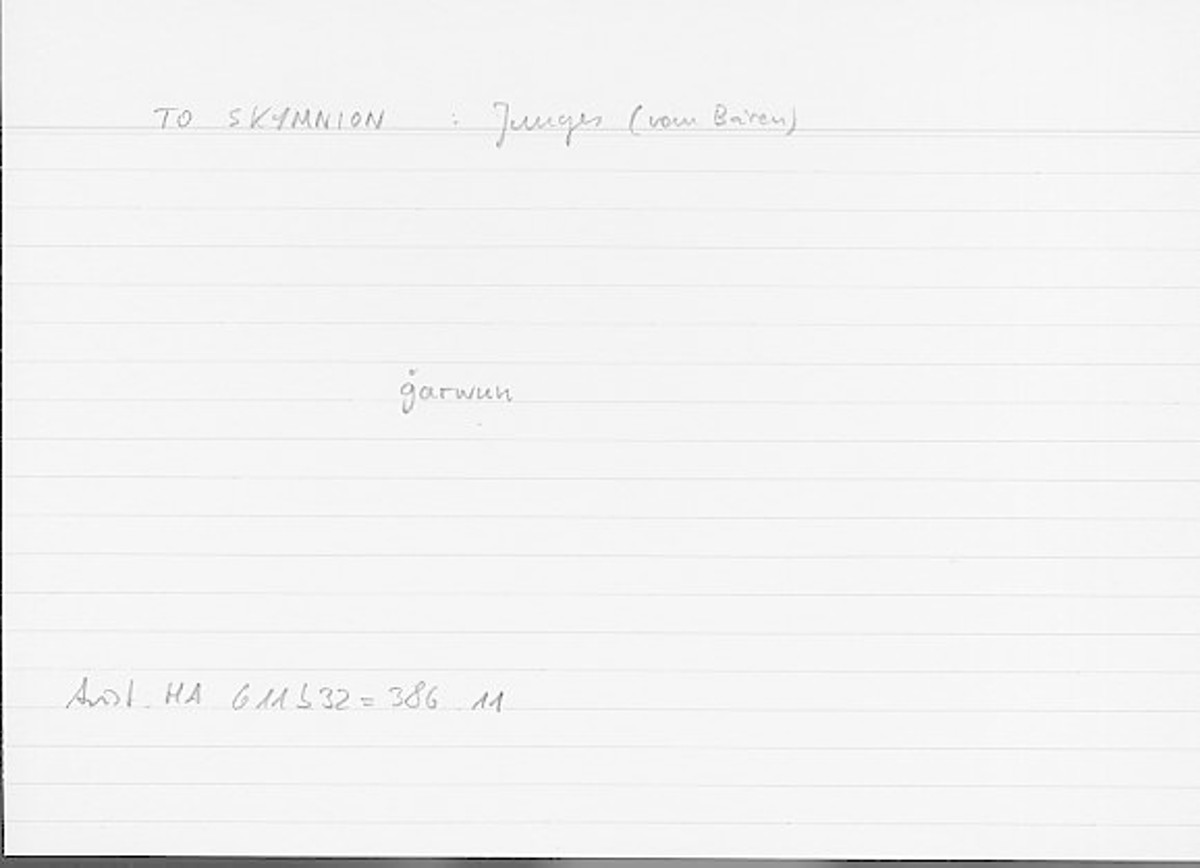 TO SKYMNION : Junges (vom Bären)
ǧarwun
Arist. HA 611b32 = 386 11